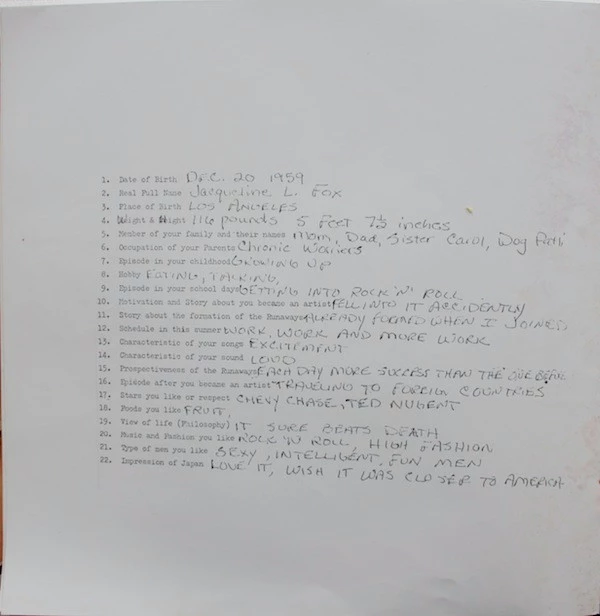 1. Date of Birth DEC. 20 1959
2. Real Full Name Jacqueline L. Fox
3. Place of Birth LOS ANGELES
4. Wight & Hight 116 pounds 5 FEET 7½ inches
5. Member of your family and their names Mom, Dad, Sister Carol, Dog
6. Occupation of your Parents Chronic Workers
7. Episode in your childhood GROWING UP
8. Hobby EATING, TALKING,
9. Episode in your school days GETTING INTO ROCK 'N' ROLL
10. Motivation and Story about you became an artist FELL INTO IT ACCIDENTLY
11. Story about the formation of the Runaways ALREADY FORMED WHEN I JOINED
12. Schedule in this summer WORK, WORK AND MORE WORK
13. Characteristic of your songs EXCITEMENT
14. Characteristic of your sound LOUD
15. Prospectiveness of the Runaways EACH DAY MORE SUCCESS THAN THE ONE
16. Episode after you became an artist TRAVELING TO FOREIGN COUNTRIES
17. Stars you like or respect CHEVY CHASE, TED NUGENT
18. Foods you like FRUIT,
19. View of life (Philosophy) IT SURE BEATS DEATH
20. Music and Fashion you like ROCK 'N ROLL, HIGH FASHION
21. Type of men you like SEXY, INTELLIGENT, FUN MEN
22. Impression of Japan LOVE IT, WISH IT WAS CLOSER TO AMERICA